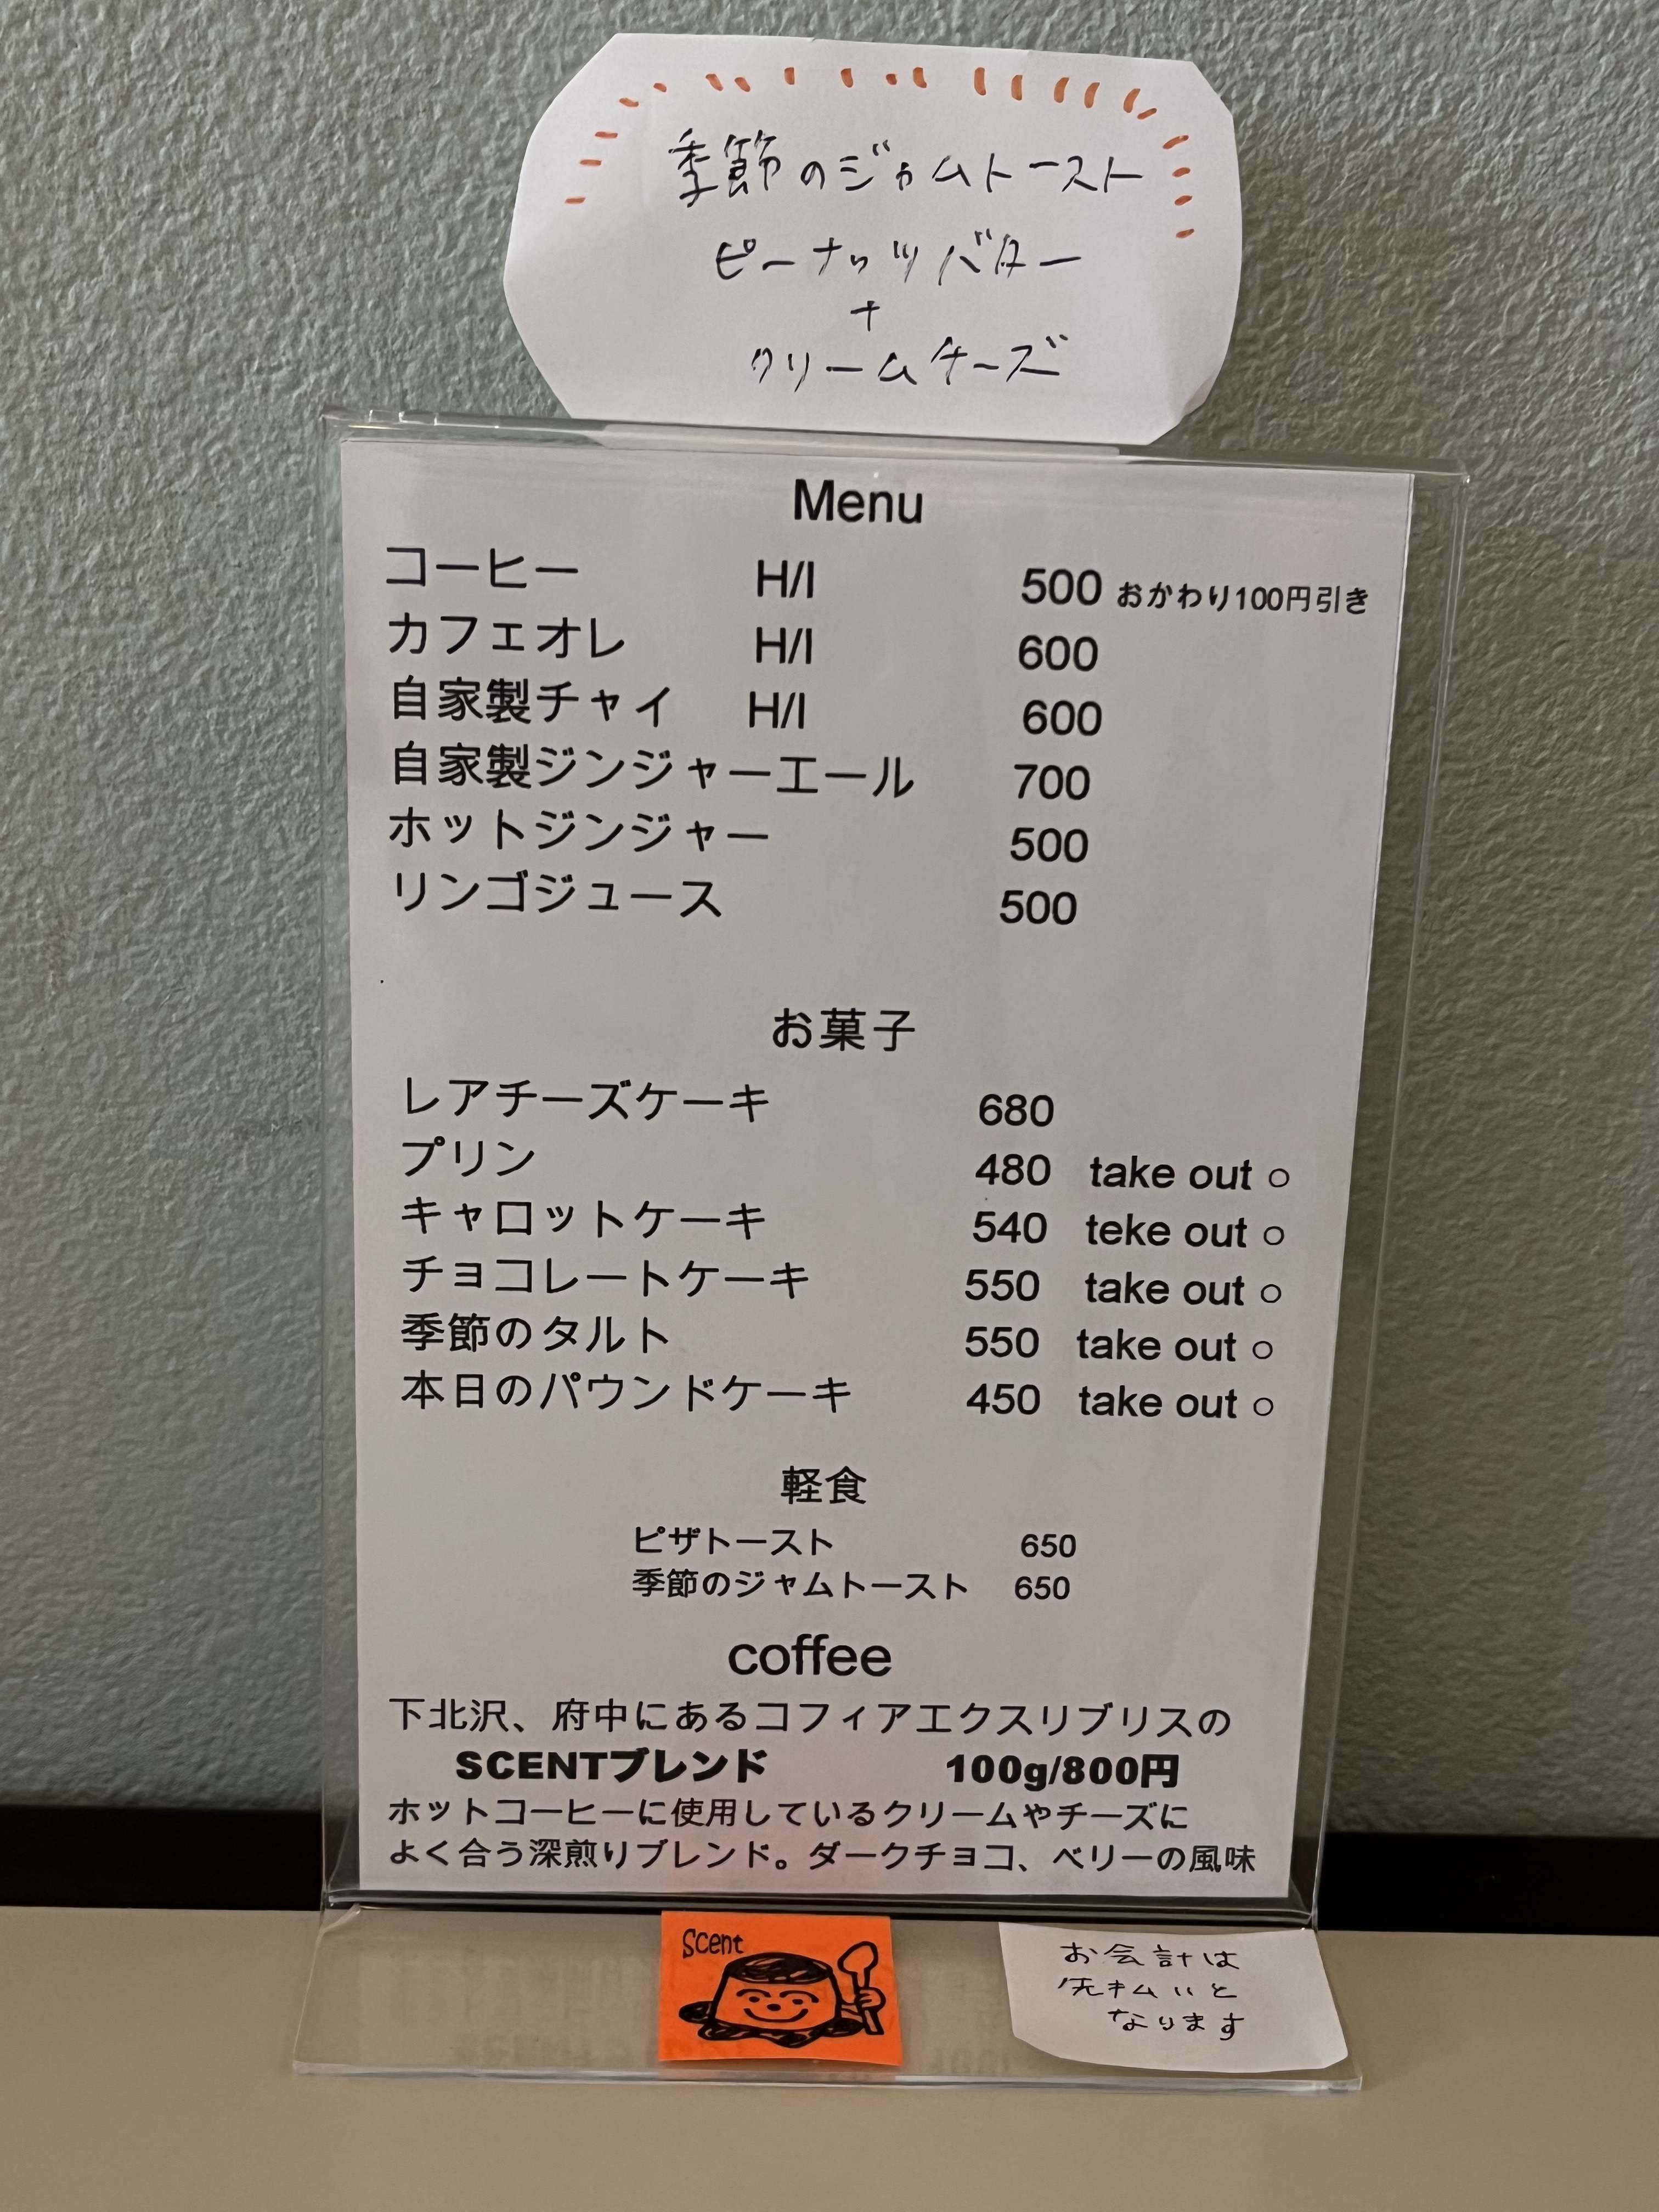 季節のジャムトースト
ピーナッツバター
+
クリームチーズ
Menu
コーヒー H/I 500 おかわり100円引き
カフェオレ H/I 600
自家製チャイ H/I 600
自家製ジンジャーエール 700
ホットジンジャー 500
リンゴジュース 500
お菓子
レアチーズケーキ 680
プリン 480 take out ○
キャロットケーキ 540 teke out ○
チョコレートケーキ 550 take out ○
季節のタルト 550 take out ○
本日のパウンドケーキ 450 take out ○
軽食
ピザトースト 650
季節のジャムトースト 650
coffee
下北沢、府中にあるコフィアエクスリブリスの
SCENTブレンド 100g/800円
ホットコーヒーに使用しているクリームやチーズに
よく合う深煎りブレンド。ダークチョコ、ベリーの風味
Scent
お会計は
先払いと
なります